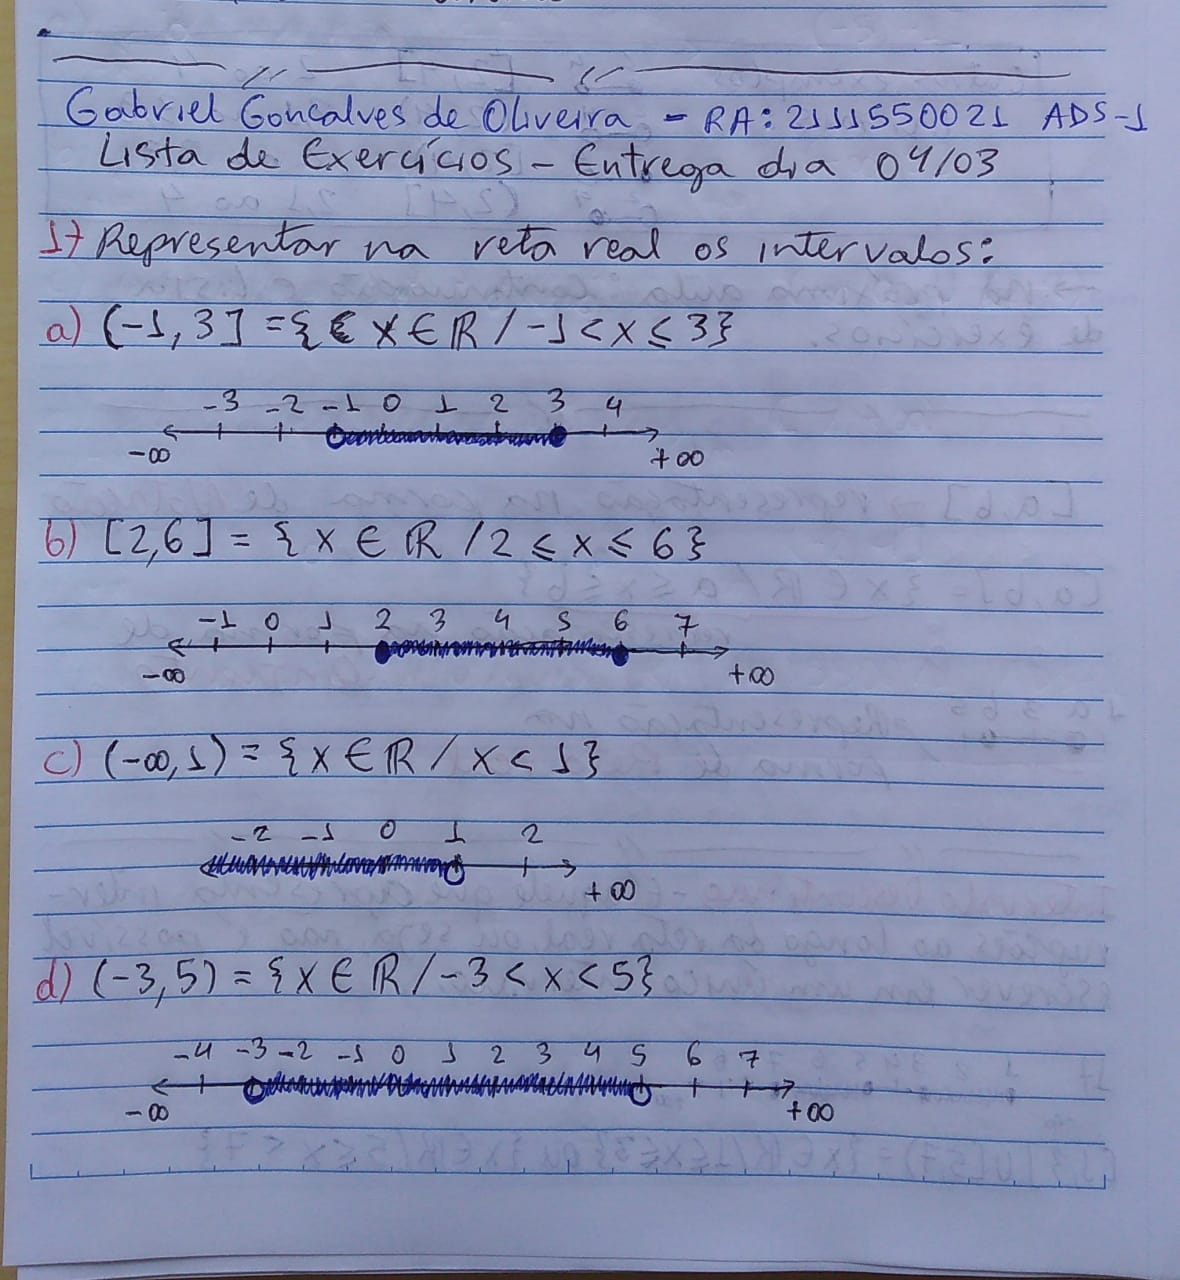 Gabriel Goncalves de Oliveira - RA: 2111550021 ADS-1
Lista de Exercícios - Entrega dia 04/03
1) Representar na reta real os intervalos:
a) (-1,3] = { x ∈ ℝ / -1 < x ≤ 3}
-3 -2 -1 0 1 2 3 4
-∞ +∞
b) [2,6] = { x ∈ ℝ / 2 ≤ x ≤ 6}
-1 0 1 2 3 4 5 6 7
-∞ +∞
c) (-∞,1) = { x ∈ ℝ / x < 1}
-2 -1 0 1 2
+∞
d) (-3,5) = { x ∈ ℝ / -3 < x < 5}
-4 -3 -2 -1 0 1 2 3 4 5 6 7
-∞ +∞